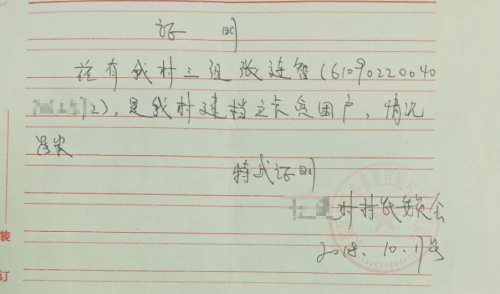 证明
兹有我村三组张连智(61090220040
2),是我村建档立卡贫困户,情况
属实
特此证明
村村民委员会
2018.10.17号
装
订